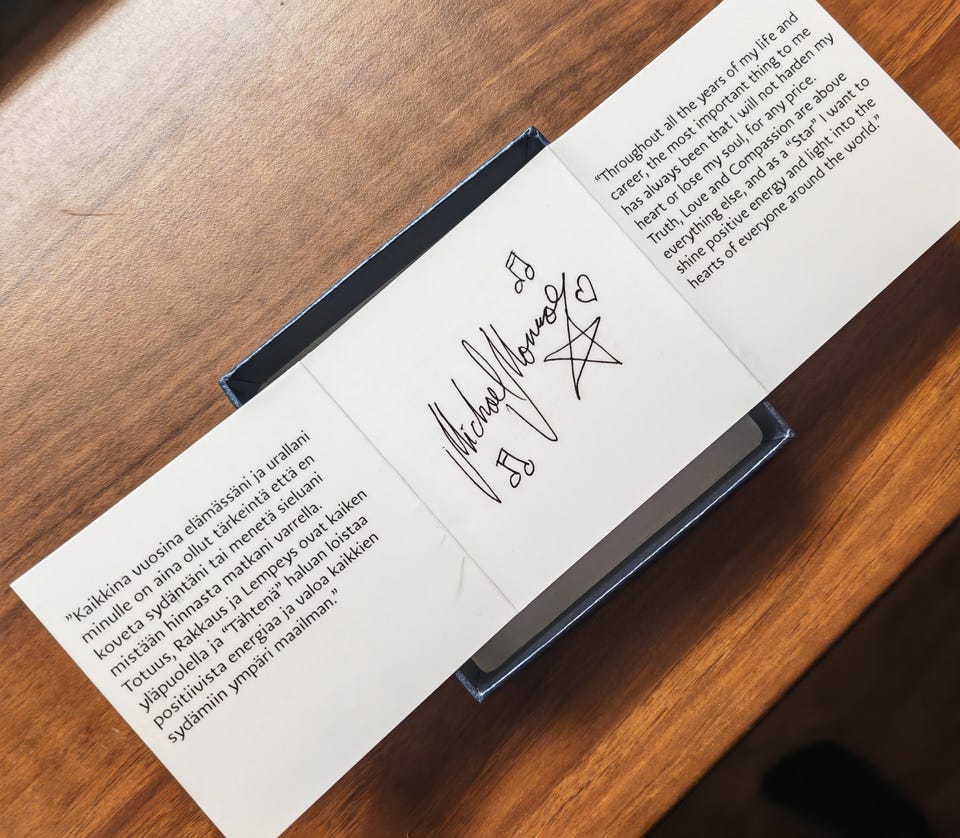 ”Kaikkina vuosina elämässäni ja urallani
minulle on aina ollut tärkeintä että en
koveta sydäntäni tai menetä sieluani
mistään hinnasta matkani varrella.
Totuus, Rakkaus ja Lempeys ovat kaiken
yläpuolella ja ”Tähtenä” haluan loistaa
positiivista energiaa ja valoa kaikkien
sydämiin ympäri maailman.”
Michael Monroe
“Throughout all the years of my life and
career, the most important thing to me
has always been that I will not harden my
heart or lose my soul, for any price.
Truth, Love and Compassion are above
everything else, and as a “Star” I want to
shine positive energy and light into the
hearts of everyone around the world.”